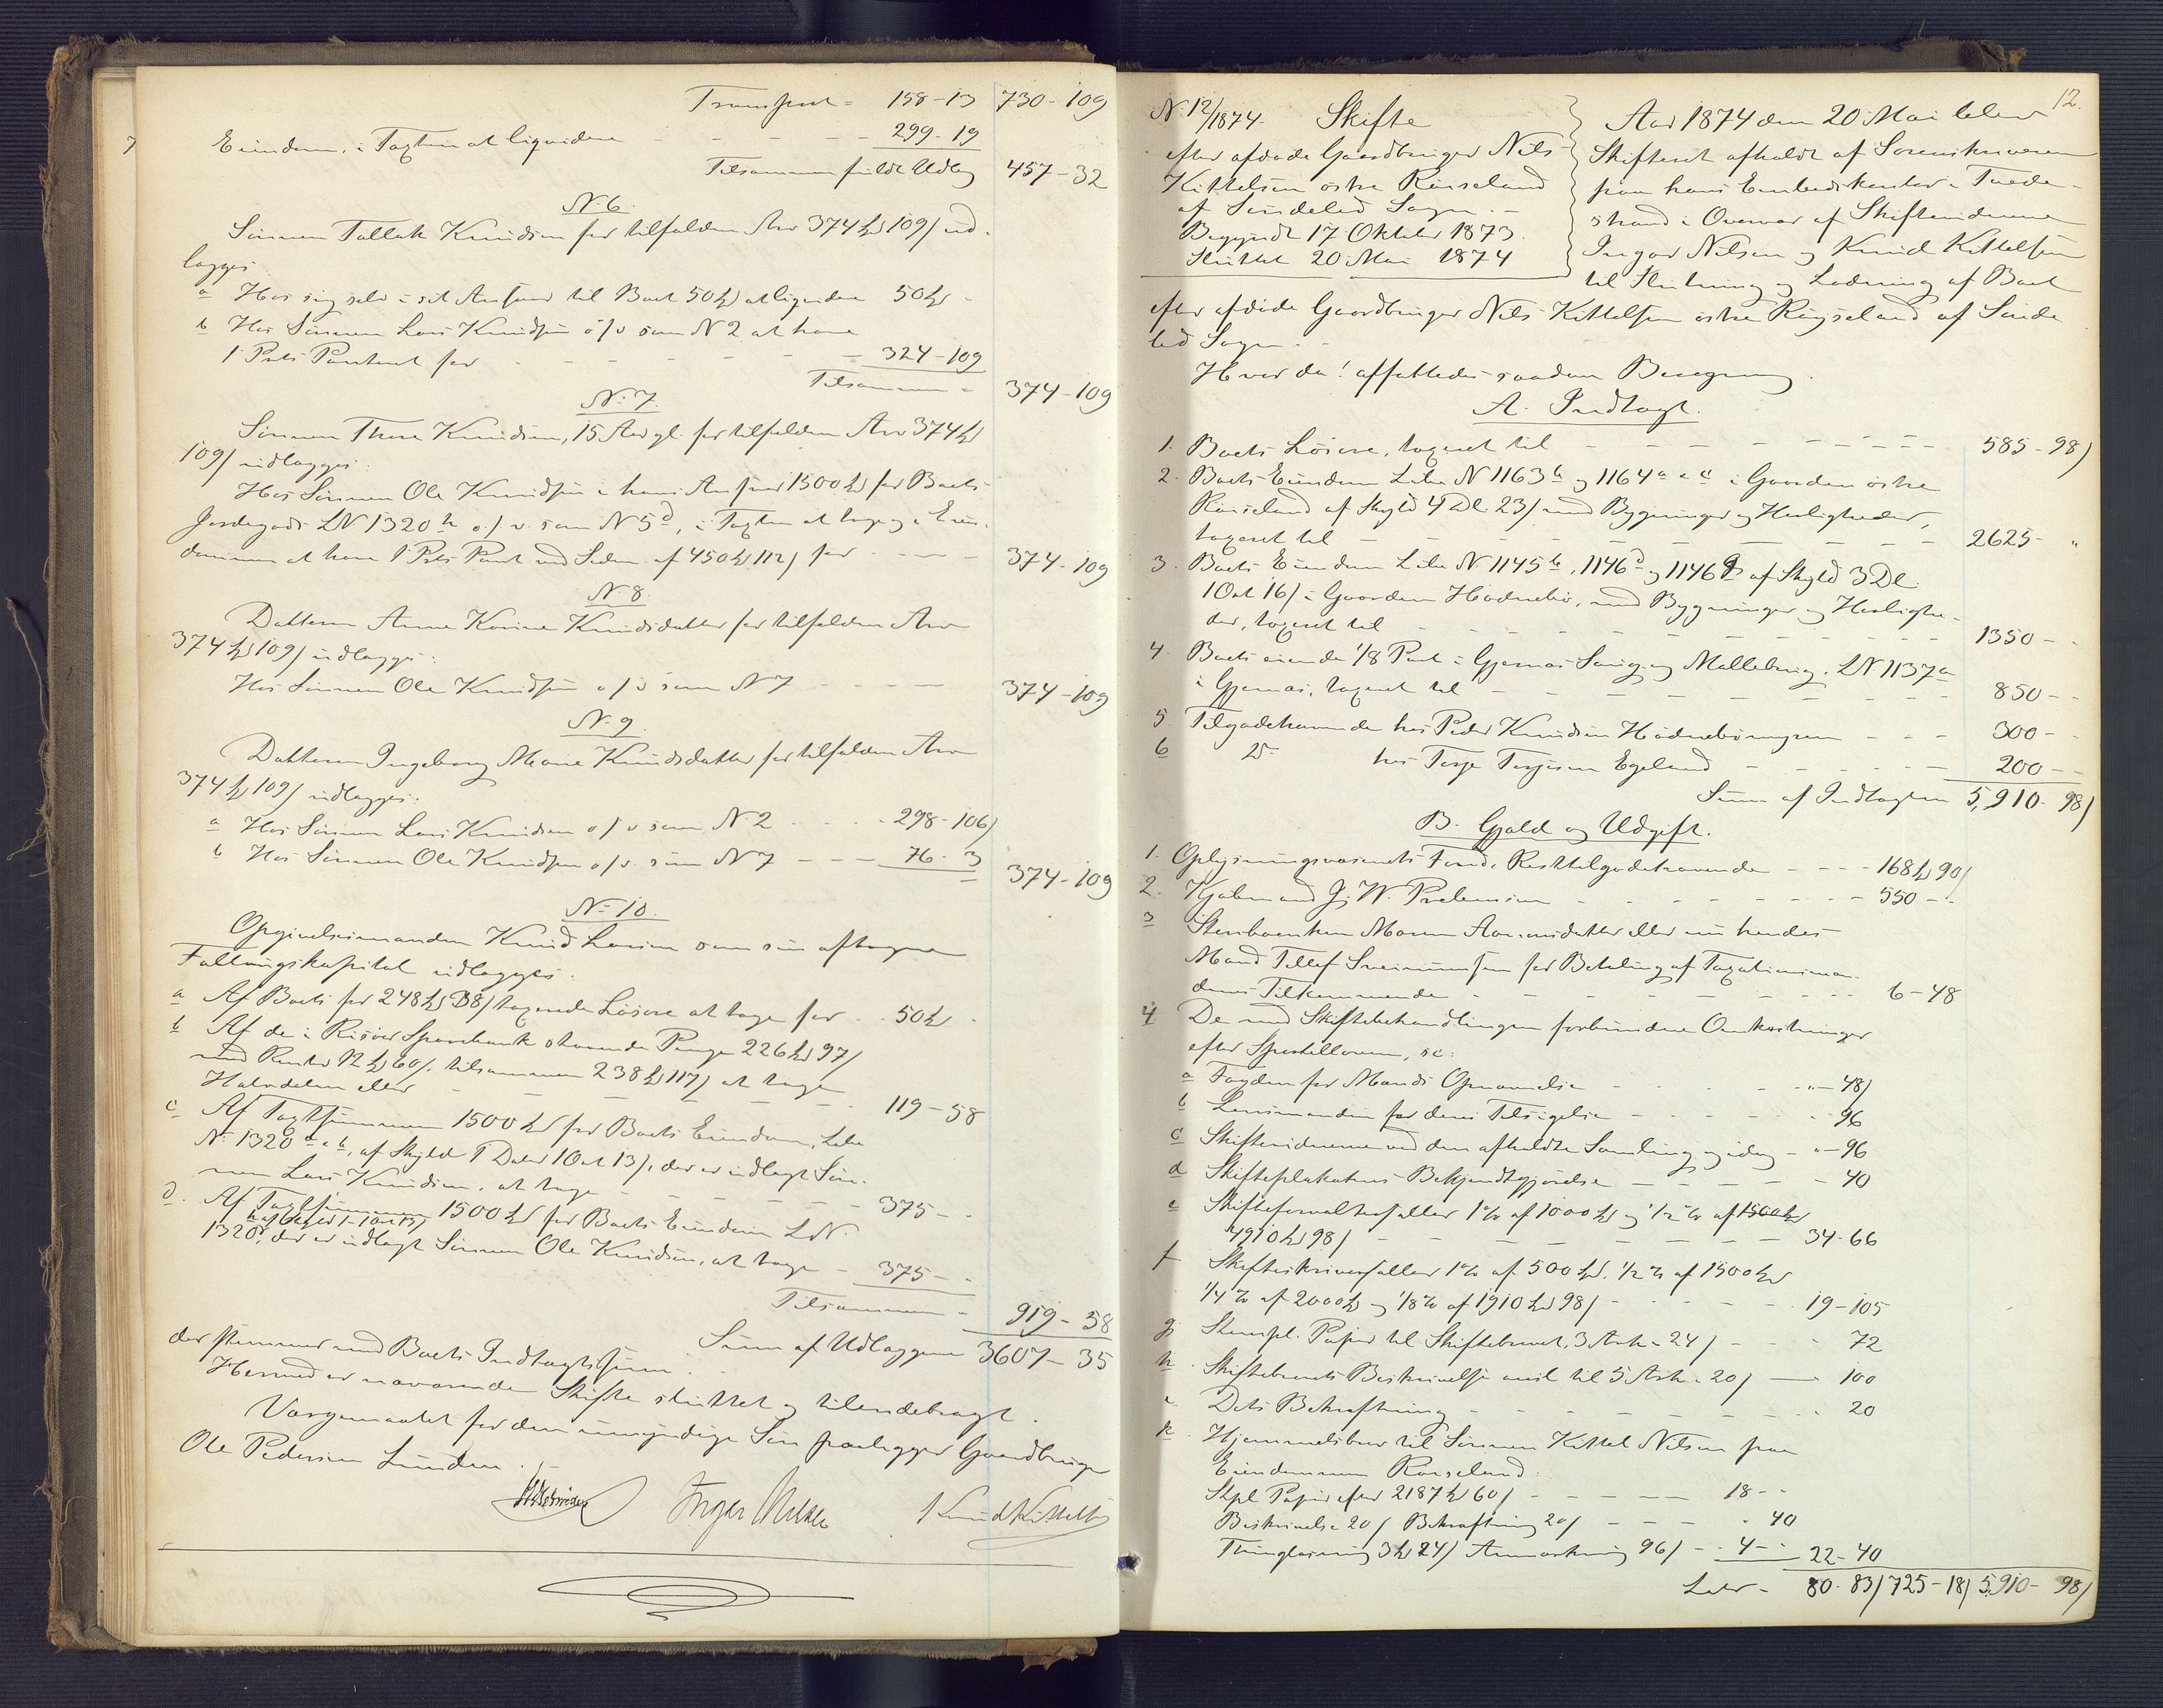 Transport = 158-13 730-109
7 Eiendom, i Taxten at liquidere - - - - 299-19
Tilsammen fuldt Udlæg 457-32
No 6.
Sønnen Tallak Knudsen for tilfalden Arv 374 109/ ud-
lægges
a Hos sig selv i sit Ansvar til Boet 50 at liquidere 50
b Hos Sønnen Lars Knudsen o/v som N 2 at have
1 Prts Panteret for - - - - - - 324-109
Tilsammen = 374-109
No 7.
Sønnen Thore Knudsen, 15 Aar gl. for tilfalden Arv 374
109/ udlægges:
Hos Sønnen Ole Knudsen i hans Ansvar 1500 for Boets
Jordegods LN 1320 b o/v som N 5 d, i Taxten at tage og i Eien-
dommen at have 1 Prts Pant ved Siden af 450 112/ for - - - 374-109
No 8.
Datteren Anne Karine Knudsdatter for tilfalden Arv
374 109/ udlægges:
Hos Sønnen Ole Knudsen o/v som N 7 - - - 374-109
No 9.
Datteren Ingeborg Marie Knudsdatter for tilfalden Arv
374 109/ udlægges:
a Hos Sønnen Lars Knudsen o/v som N 2 - - - 298-106/
b Hos Sønnen Ole Knudsen o/v som N 7 - - - 76-3
374-109
No 10.
Opgivelsesmanden Knud Larsen som sin aftagne
Fallingskapital udlægges:
a Af Boets for 248 38/ taxerede Løsøre at tage for - - 50
b Af de i Risøer Sparebank staaende Penge 226 97/
med Renter 12 60/, tilsammen 238 117/ at tage
Halvdelen eller - - - - - - 119-58
c Af Taxtsummen 1500 for Boets Eiendom, Løbe
No 1320 a & b, af Skyld 1 Daler 1 Ort 13/, der er udlagt Søn-
nen Lars Knudsen, at tage - - - - - 375-
d. Af Taxtsummen 1500 for Boets Eiendom LN.
af Skyld 1-1 Ort 13/
1320, der er udlagt Sønnen Ole Knudsen, at tage - 375-
Tilsammen - 919-58
Sum af Udlæggene 3607-35
der stemmer med Boets Indtægtssum.
Hermed er nærværende Skifte sluttet og tilendebragt.
Værgemaalet for den umyndige Søn paaligger Gaardbruger
Ole Pedersen Lunden.
Inger Nilsen Knud Kittelsen
12.
No 12/1874. Skifte
efter afdøde Gaardbruger Nils
Kittelsen østre Røiseland
af Søndeled Sogn. -
Begyndt 17 Oktober 1873.
Sluttet 20 Mai 1874
Aar 1874 den 20 Mai blev
Skifteret afholdt af Sorenskriveren
paa hans Embedskontor i Tvede-
strand i Overvær af Skiftevidnerne
Inger Nilsen og Knud Kittelsen
til Slutning og Lodning af Boet
efter afdøde Gaardbruger Nils Kittelsen østre Røiseland af Sønde-
led Sogn. -
Hvor da: affattedes saadan Beregning.
A. Indtægt.
1. Boets Løsøre, taxeret til - - - - - - 585-98/
2. Boets Eiendom Løbe N 1163 b og 1164 a & c i Gaarden østre
Røiseland af Skyld 4 Dl. 23/ med Bygninger og Herligheder,
taxeret til - - - - - - - 2625-"
3. Boets Eiendom Løbe N 1145 b, 1146 d og 1146 g af Skyld 3 Dl
1 Ort 16/ i Gaarden Hødnebø, med Bygninger og Herlighe-
der, taxeret til - - - - - - - 1350-
4. Boets eiende 1/8 Part i Gjernæs Saug og Møllebrug, LN 1137 a
i Gjernæs, taxeret til - - - - - - 850-
5 Tilgodehavende hos Peder Knudsen Hødnebømyren - - - 300-
6 Do hos Terje Terjesen Egeland - - - - 200-
Sum af Indtægten 5,910-98/
B. Gjæld og Udgift.
1. Oplysningsvæsenets Fond, Resttilgodehavende - - - 168 90/
2. Kjøbmand J. W. Prebensen - - - - - 550-
3 Sterboenken Maren Aanonsdatter eller nu hendes
Mand Tellef Sveinunsen for Betaling af Taxationsmæn-
denes Tilkommende - - - - - 6-48
4. De med Skiftebehandlingen forbundne Omkostninger
efter Sportelloven, sc:
a Fogden for Mænds Opnævnelse - - - "-48/
b Lensmanden for deres Tilsigelse - - - 96
c Skiftevidnerne ved den afholdte Samling og idag - "-96
d Skifteplakatens Bekjendtgjørelse - - - 40
e Skifteforvaltersaller 1% af 1000 og 1/2 % af 1500
4910 98/ - - - - - - 34-66
f Skifteskriversaller 1% af 500, 1/2 % af 1500
1/4 % af 2000 og 1/8 % af 1910 98/ - - - 19-105
g Stempl. Papir til Skiftebrevet, 3 Ark a 24/ - - - 72
h. Skiftebrevets Beskrivelse ansl. til 5 Ark a 20/ - - 100
i Dets Bekræftning - - - - - - 20
k. Hjemmelsbrev til Sønnen Kittel Nilsen paa
Eiendommen Røiseland:
Stpl. Papir efter 2187 60/ - - - 18-
Beskrivelse 20/ Bekræftning 20/ - - - 40
Thinglæsning 3 24/ Anmærkning 96/ - - 4- - 22-40
Later - 80-83/ 725-18/ 5,910-98/